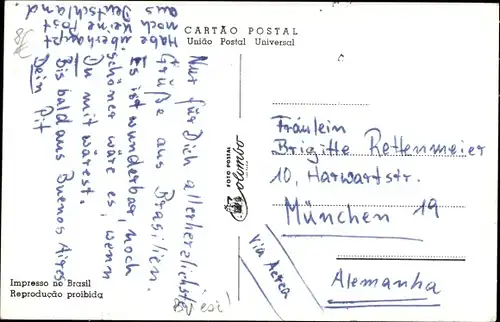 CARTÃO POSTAL
União Postal Universal
Nur für Dich allerherzlichst
Grüße aus Brasilien.
Es ist wunderbar, noch
schöner wäre es, wenn
Du mit wärest.
Bis bald aus Buenos Aires
Dein Pit
Habe überhaupt
noch keine Post
aus Deutschland
FOTO POSTAL
Colombo
Fräulein
Brigitte Rettenmeier
10, Harwartstr.
München 19
Alemanha
Via Aerea
Impresso no Brasil
Reprodução proibida